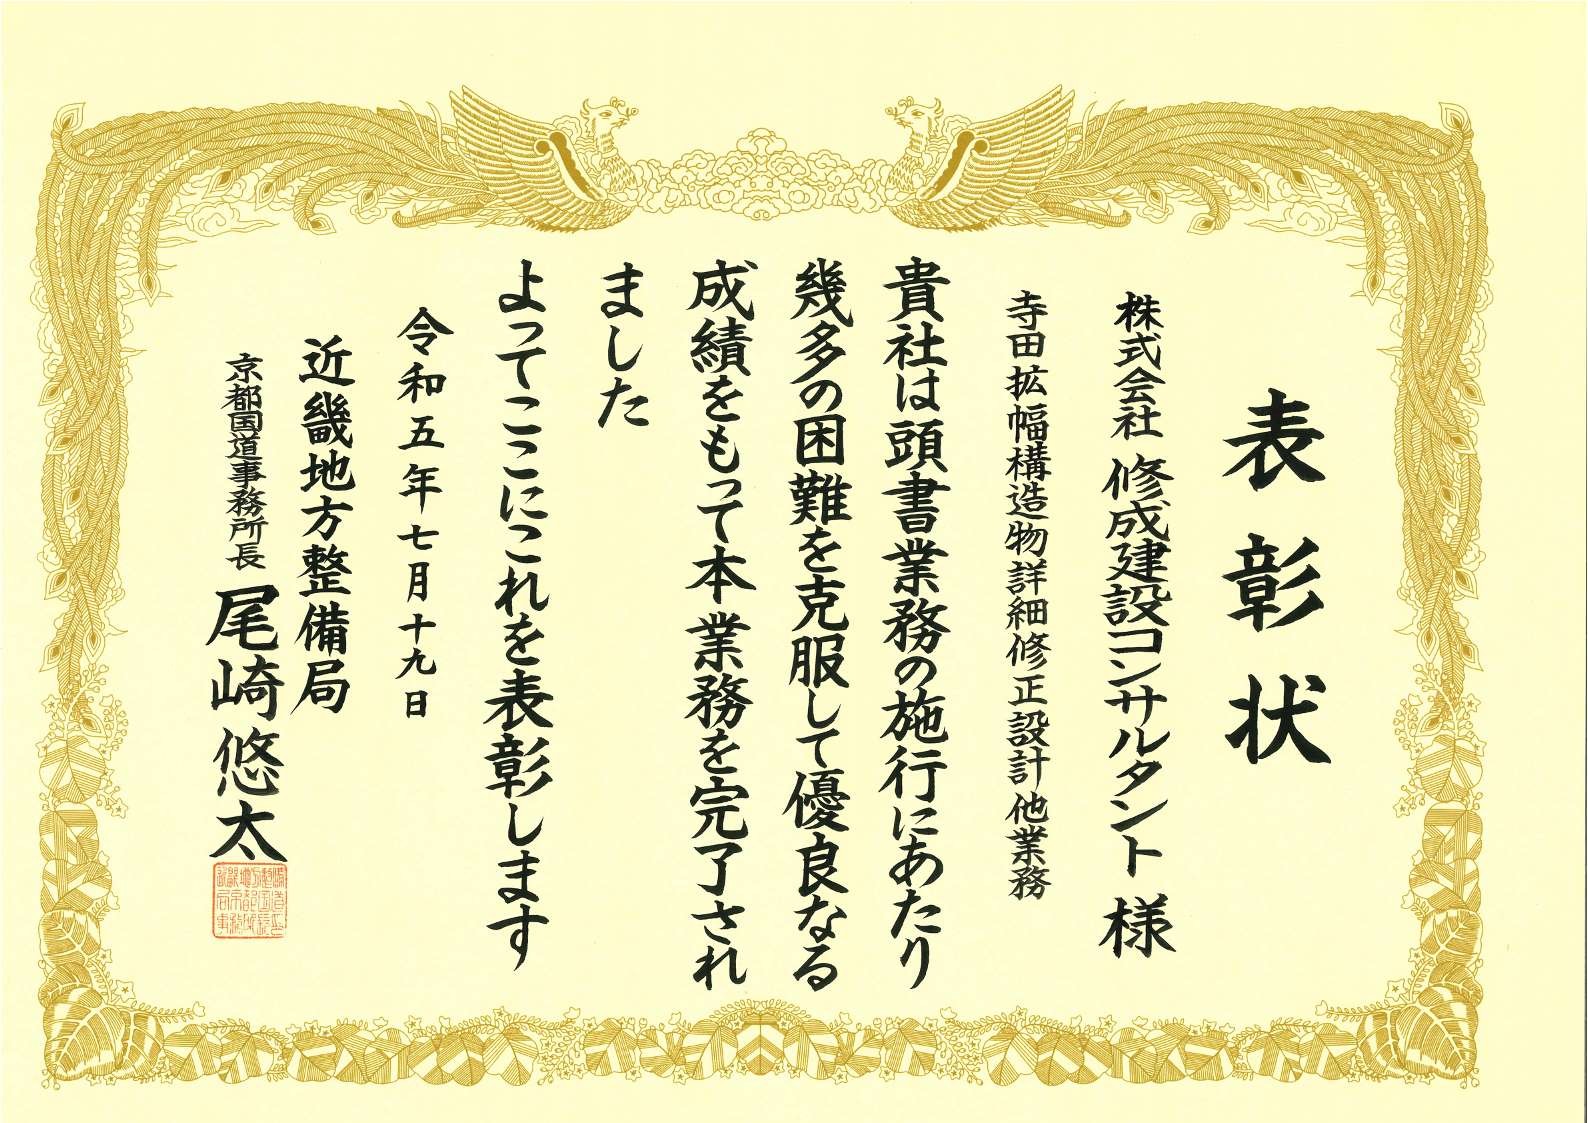 表彰状
株式会社 修成建設コンサルタント 様
寺田拡幅構造物詳細修正設計他業務
貴社は頭書業務の施行にあたり
幾多の困難を克服して優良なる
成績をもって本業務を完了され
ました
よってここにこれを表彰します
令和五年七月十九日
近畿地方整備局
京都国道事務所長 尾崎悠太